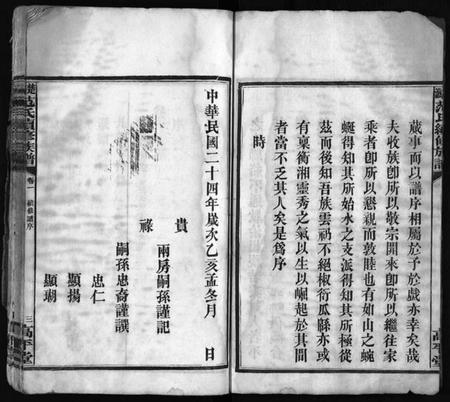 蕆事而以譜序相屬於予於戲亦幸矣哉
夫收族卽所以敬宗開來卽所以繼往家
乘者卽所以懇親而敦陸也有如山之蜿
蜒得知其所始水之支派得知其所極從
茲而後知吾族雲礽不絕椒衍瓜緜亦或
有稟衡湘靈秀之氣以生以崛起於其間
者當不乏其人矣是爲序
時
中華民國二十四年歲次乙亥孟冬月 日
貴
祿
兩房嗣孫謹記
嗣孫忠裔謹譔
忠仁
顯揚
顯瑚
范氏續修族譜
卷一
續修譜序
三
高平堂